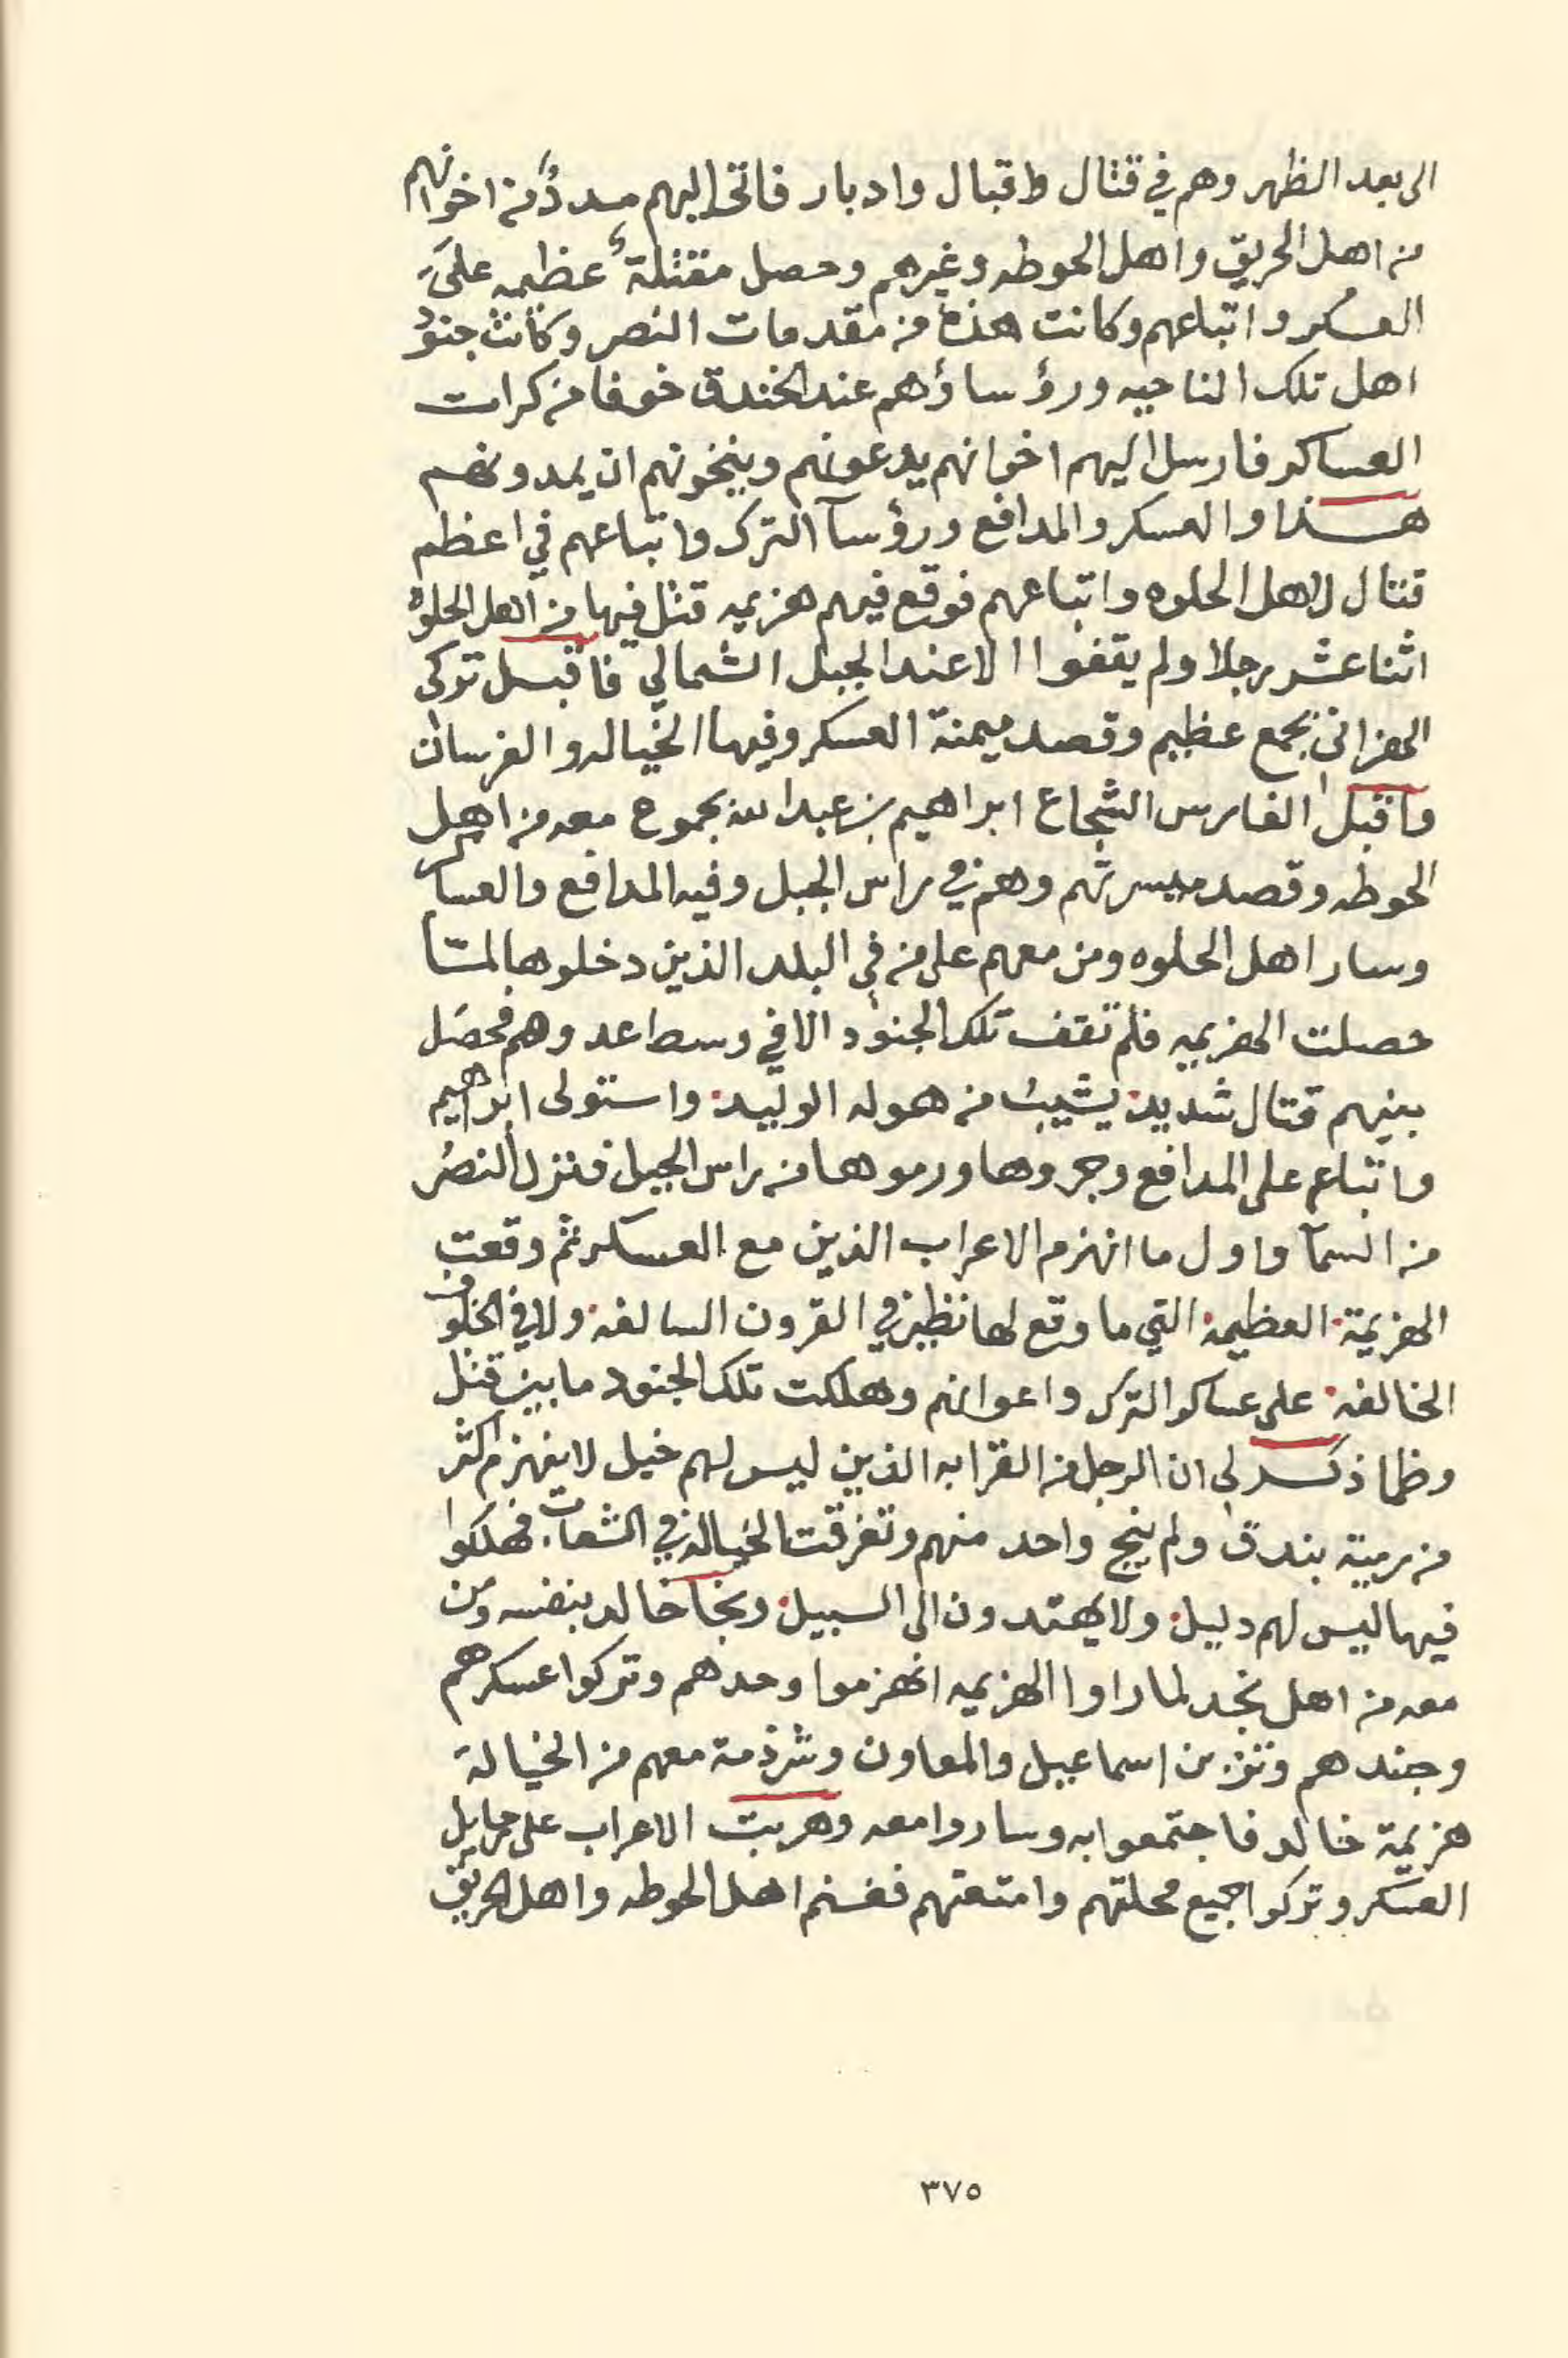 الى بعد الظهر وهم في قتال واقبال وادبار فاتى اليهم مددٌ من اخوانهم
من اهل الحريق واهل الحوطه وغيرهم وحصل مقتلة عظيمه على
العسكر واتباعهم وكانت هذه من مقدمات النصر وكانت جنود
اهل تلك الناحيه ورؤساؤهم عند الخندق خوفا من كرات
العساكر فارسل اليهم اخوانهم يدعونهم وينخونهم ان يمدونهم
هذا والعسكر والمدافع ورؤسآ الترك واتباعهم في اعظم
قتال لاهل الحلوه واتباعهم فوقع فيهم هزيمه قتل فيها من اهل الحلوه
اثنا عشر رجلا ولم يقفوا الا عند الجبل الشمالي فاقبل تركى
الهزاني بجمع عظيم وقصد ميمنة العسكر وفيها الخياله والفرسان
واقبل الفارس الشجاع ابراهيم بن عبدالله بجموع معه من اهل
الحوطه وقصد ميسرتهم وهم في راس الجبل وفيه المدافع والعساكر
وسار اهل الحلوه ومن معهم على من في البلد الذين دخلوها لمّا
حصلت الهزيمه فلم تقف تلك الجنود الا في وسط اعدوهم فحصل
بينهم قتال شديد يشيب من هوله الوليد واستولى ابراهيم
واتباعه على المدافع وجروها ورموها من راس الجبل فنزل النصر
من السمآ واول ما انهزم الاعراب الذين مع العسكر ثم وقعت
الهزيمة العظيمة التي ما وقع لها نظير في القرون السالفه ولا في الخلوف
الخالفه على عساكر الترك واعوانهم وهلكت تلك الجنود ما بين قتل
وظما ذكر لي ان الرجل من القرابه الذين ليس لهم خيل لا ينهزم اكثر
من رمية بندق ولم ينج واحد منهم وتفرقت الخياله في الشعاب فهلكوا
فيها ليس لهم دليل ولا يهتدون الى السبيل ونجا خالد بنفسه ومن
معه من اهل نجد لما راوا الهزيمه انهزموا وحدهم وتركوا عسكرهم
وجندهم وتزبن اسماعيل والمعاون وشرذمة معهم من الخيالة
هزيمة خالد فاجتمعوا به وساروا معه وهربت الاعراب على حمايل
العسكر وتركوا جميع محلتهم وامتعتهم فغنم اهل الحوطه واهل الحريق
٣٧٥